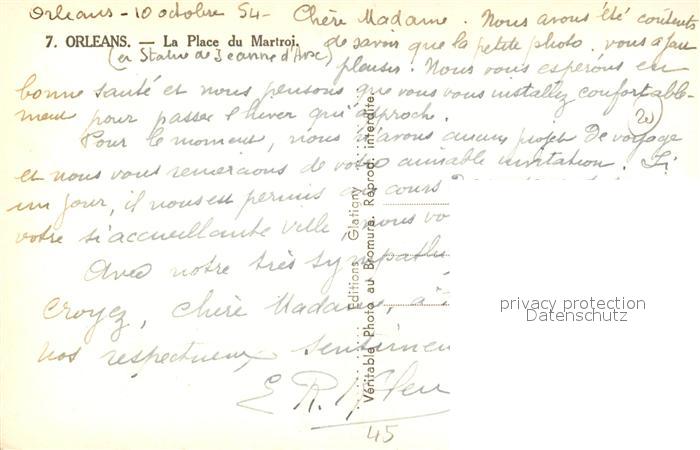 Orleans - 10 octobre 54 - Chère Madame. Nous avons été contents
7. ORLEANS. — La Place du Martroi. de savoir que la petite photo vous a fait
(et Statue de Jeanne d'Arc) plaisir. Nous vous espérons en
bonne santé et nous pensons que vous vous installez confortable-
ment pour passer l'hiver qui approche.
Pour le moment, nous n'avons aucun projet de voyage
et nous vous remercions de votre aimable invitation. Si
un jour, il nous est permis au cours
votre si accueillante ville, nous vo
Avec notre très sympathi
croyez, chère Madame, à
nos respectueux sentimen
E R.
Editions Glatigny
Véritable Photo au Bromure. Reprod. interdite.
45
privacy protection
Datenschutz